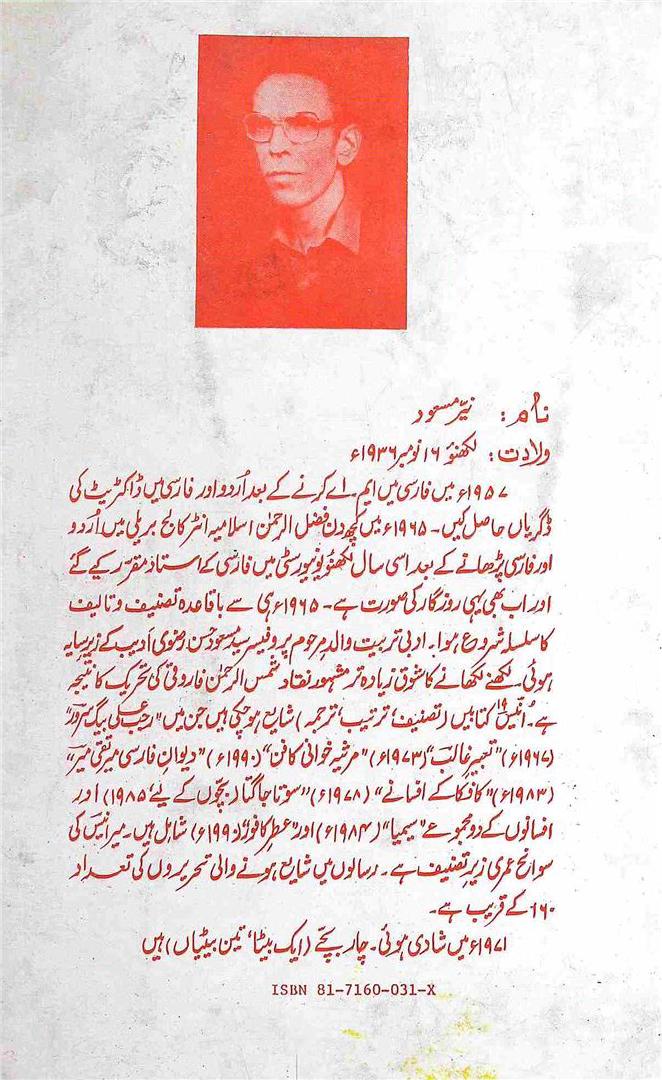 نام: نیّر مسعود
ولادت: لکھنؤ ۱۶ نومبر ۱۹۳۶ء
۱۹۵۷ء میں فارسی میں ایم۔اے کرنے کے بعد اُردو اور فارسی میں ڈاکٹریٹ کی
ڈگریاں حاصل کیں۔ ۱۹۶۵ء میں کچھ دن فضل الرحمٰن اسلامیہ انٹر کالج بریلی میں اُردو
اور فارسی پڑھانے کے بعد اسی سال لکھنؤ یونیورسٹی میں فارسی کے استاد مقرّر کیے گئے
اور اب بھی یہی روزگار کی صورت ہے۔ ۱۹۶۵ء ہی سے باقاعدہ تصنیف و تالیف
کا سلسلہ شروع ہوا۔ ادبی تربیت والدِ مرحوم پروفیسر سید مسعود حسن رضوی ادیب کے زیرِ سایہ
ہوئی۔ لکھنے لکھانے کا شوق زیادہ تر مشہور نقاد شمس الرحمٰن فاروقی کی تحریک کا نتیجہ
ہے۔ اُنیس ۱۹ کتابیں (تصنیف، ترتیب، ترجمہ) شایع ہو چکی ہیں جن میں "رجب علی بیگ سرور"
(۱۹۶۷ء) "تعبیرِ غالب" (۱۹۷۳ء) "مرثیہ خوانی کا فن" (۱۹۹۰ء) "دیوانِ فارسی میر تقی میر"
(۱۹۸۳ء) "کافکا کے افسانے" (۱۹۷۸ء) "سوتا جاگتا (بچّوں کے لیے، ۱۹۸۵) اور
افسانوں کے دو مجموعے "سیمیا" (۱۹۸۴ء) اور "عطرِ کافور" (۱۹۹۰ء) شامل ہیں۔ میر انیس کی
سوانح عمری زیرِ تصنیف ہے۔ رسالوں میں شایع ہونے والی تحریروں کی تعداد
۱۶۰ کے قریب ہے۔
۱۹۷۱ء میں شادی ہوئی۔ چار بچّے (ایک بیٹا، تین بیٹیاں) ہیں
ISBN 81-7160-031-X